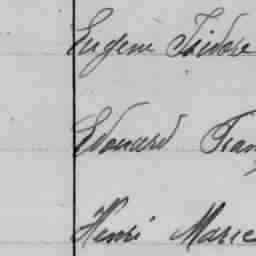 Eugene Isidore
Edouard Fran
Henri Marie